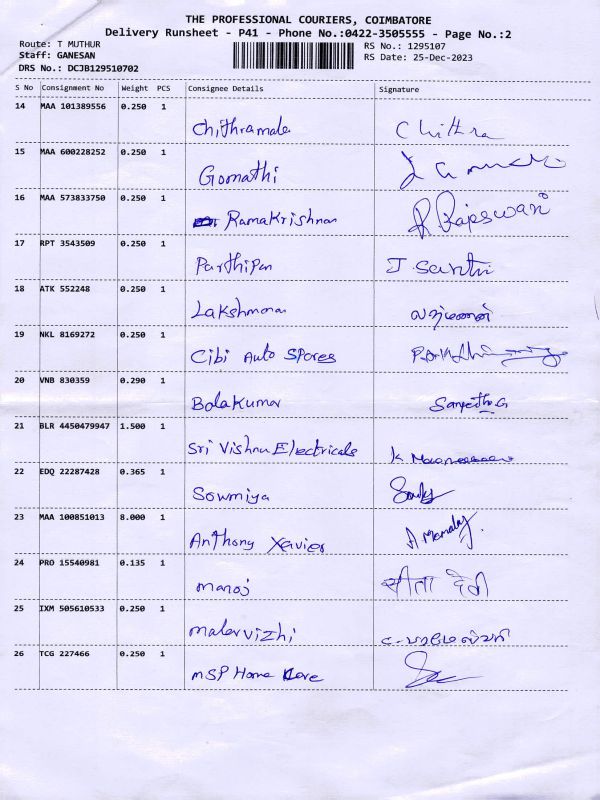 THE PROFESSIONAL COURIERS, COIMBATORE
Delivery Runsheet - P41 - Phone No.:0422-3505555 - Page No.:2
Route: T MUTHUR
RS No.: 1295107
Staff: GANESAN
RS Date: 25-Dec-2023
DRS No.: DCJB129510702
S No Consignment No Weight PCS Consignee Details Signature
14 MAA 101389556 0.250 1
Chithramala Chithra
15 MAA 600228252 0.250 1
Gomathi
16 MAA 573833750 0.250 1
RamaKrishnan R Rajeswari
17 RPT 3543509 0.250 1
Parthipan J Santhi
18 ATK 552248 0.250 1
Lakshmanan லஷ்மணன்
19 NKL 8169272 0.250 1
Cibi Auto Spares
20 VNB 830359 0.290 1
BalaKumar Sangeetha.G
21 BLR 4450479947 1.500 1
Sri Vishnu Electricals K
22 EDQ 22287428 0.365 1
Sowmiya
23 MAA 100851013 8.000 1
Anthony Xavier A
24 PRO 15540981 0.135 1
manoj सीता देवी
25 IXM 505610533 0.250 1
malarvizhi
26 TCG 227466 0.250 1
MSP Home Care